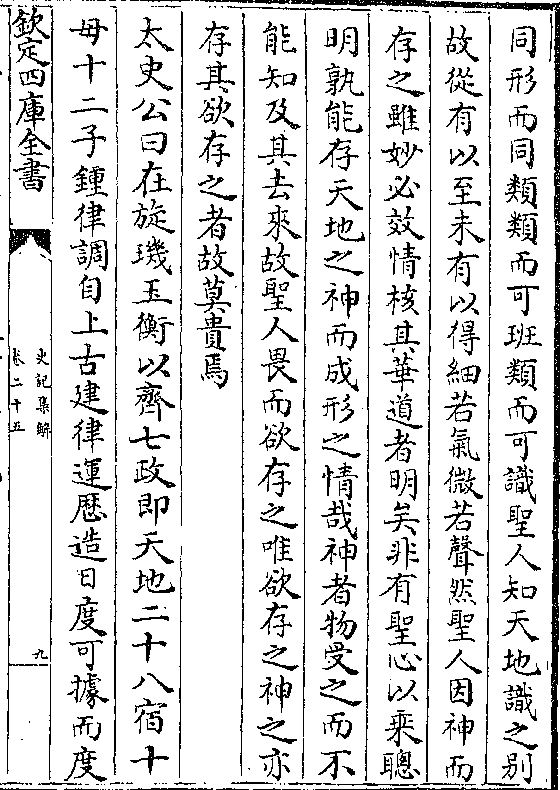 同形而同類類而可班類而可識聖人知天地識之别
故從有以至未有以得細若氣微若聲然聖人因神而
存之雖妙必效情核其華道者明矣非有聖心以乘聰
明孰能存天地之神而成形之情哉神者物受之而不
能知及其去來故聖人畏而欲存之唯欲存之神之亦
存其欲存之者故莫貴焉
太史公曰在旋璣玉衡以齊七政即天地二十八宿十
母十二子鍾律調自上古建律運厯造日度可據而度
欽定四庫全書
史記集解
卷二十五
九